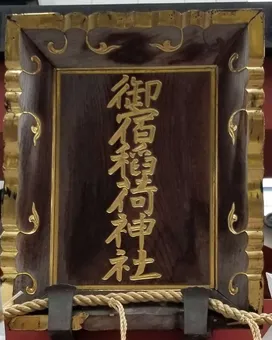 御宿稻荷神社